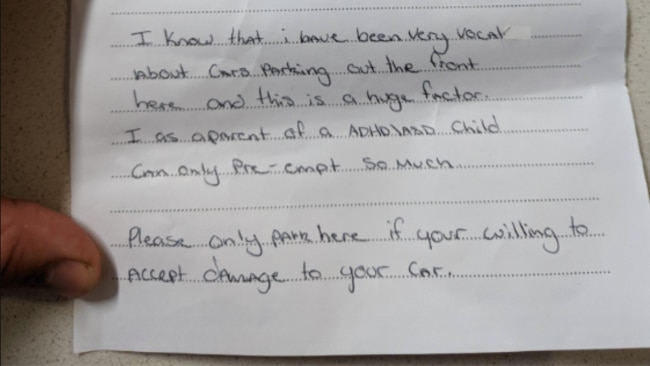 I know that i have been very vocal
about cars parking out the front
here and this is a huge factor.
I as aparent of a ADHD\ASD child
can only pre-empt so much
Please only park here if your willing to
accept damage to your car.